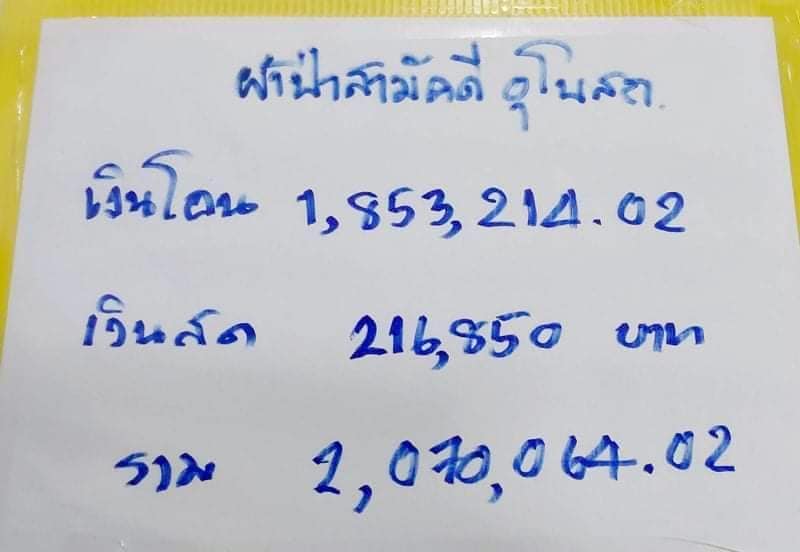 ผ้าป่าสามัคคี อุโบสถ.
เงินโอน 1,853,214.02
เงินสด 216,850 บาท
รวม 2,070,064.02